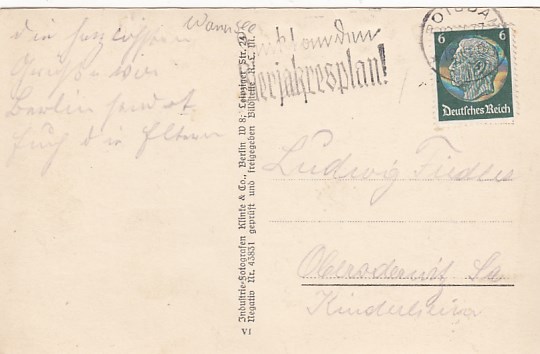 Wannsee
die herzlichsten
Grüße aus
Berlin sendet
Euch die Eltern
Industrie-Fotografen Klinke & Co., Berlin W 8, Leipziger Str. 24
Negativ Nr. 45831 geprüft und freigegeben Bildstelle R. L. M.
VI
den
Vierjahresplan!
6 6
Deutsches Reich
Ludwig Fiedler
Oberoderwitz Sa
Kinderheim